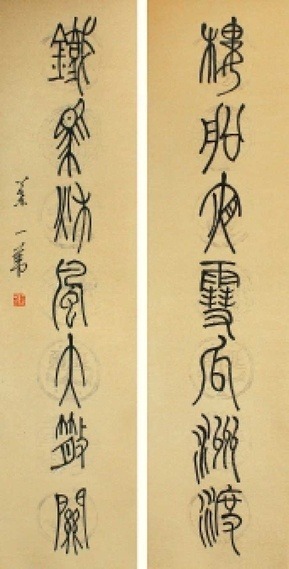 樓船夜雪瓜洲渡
鐵馬秋風大散關